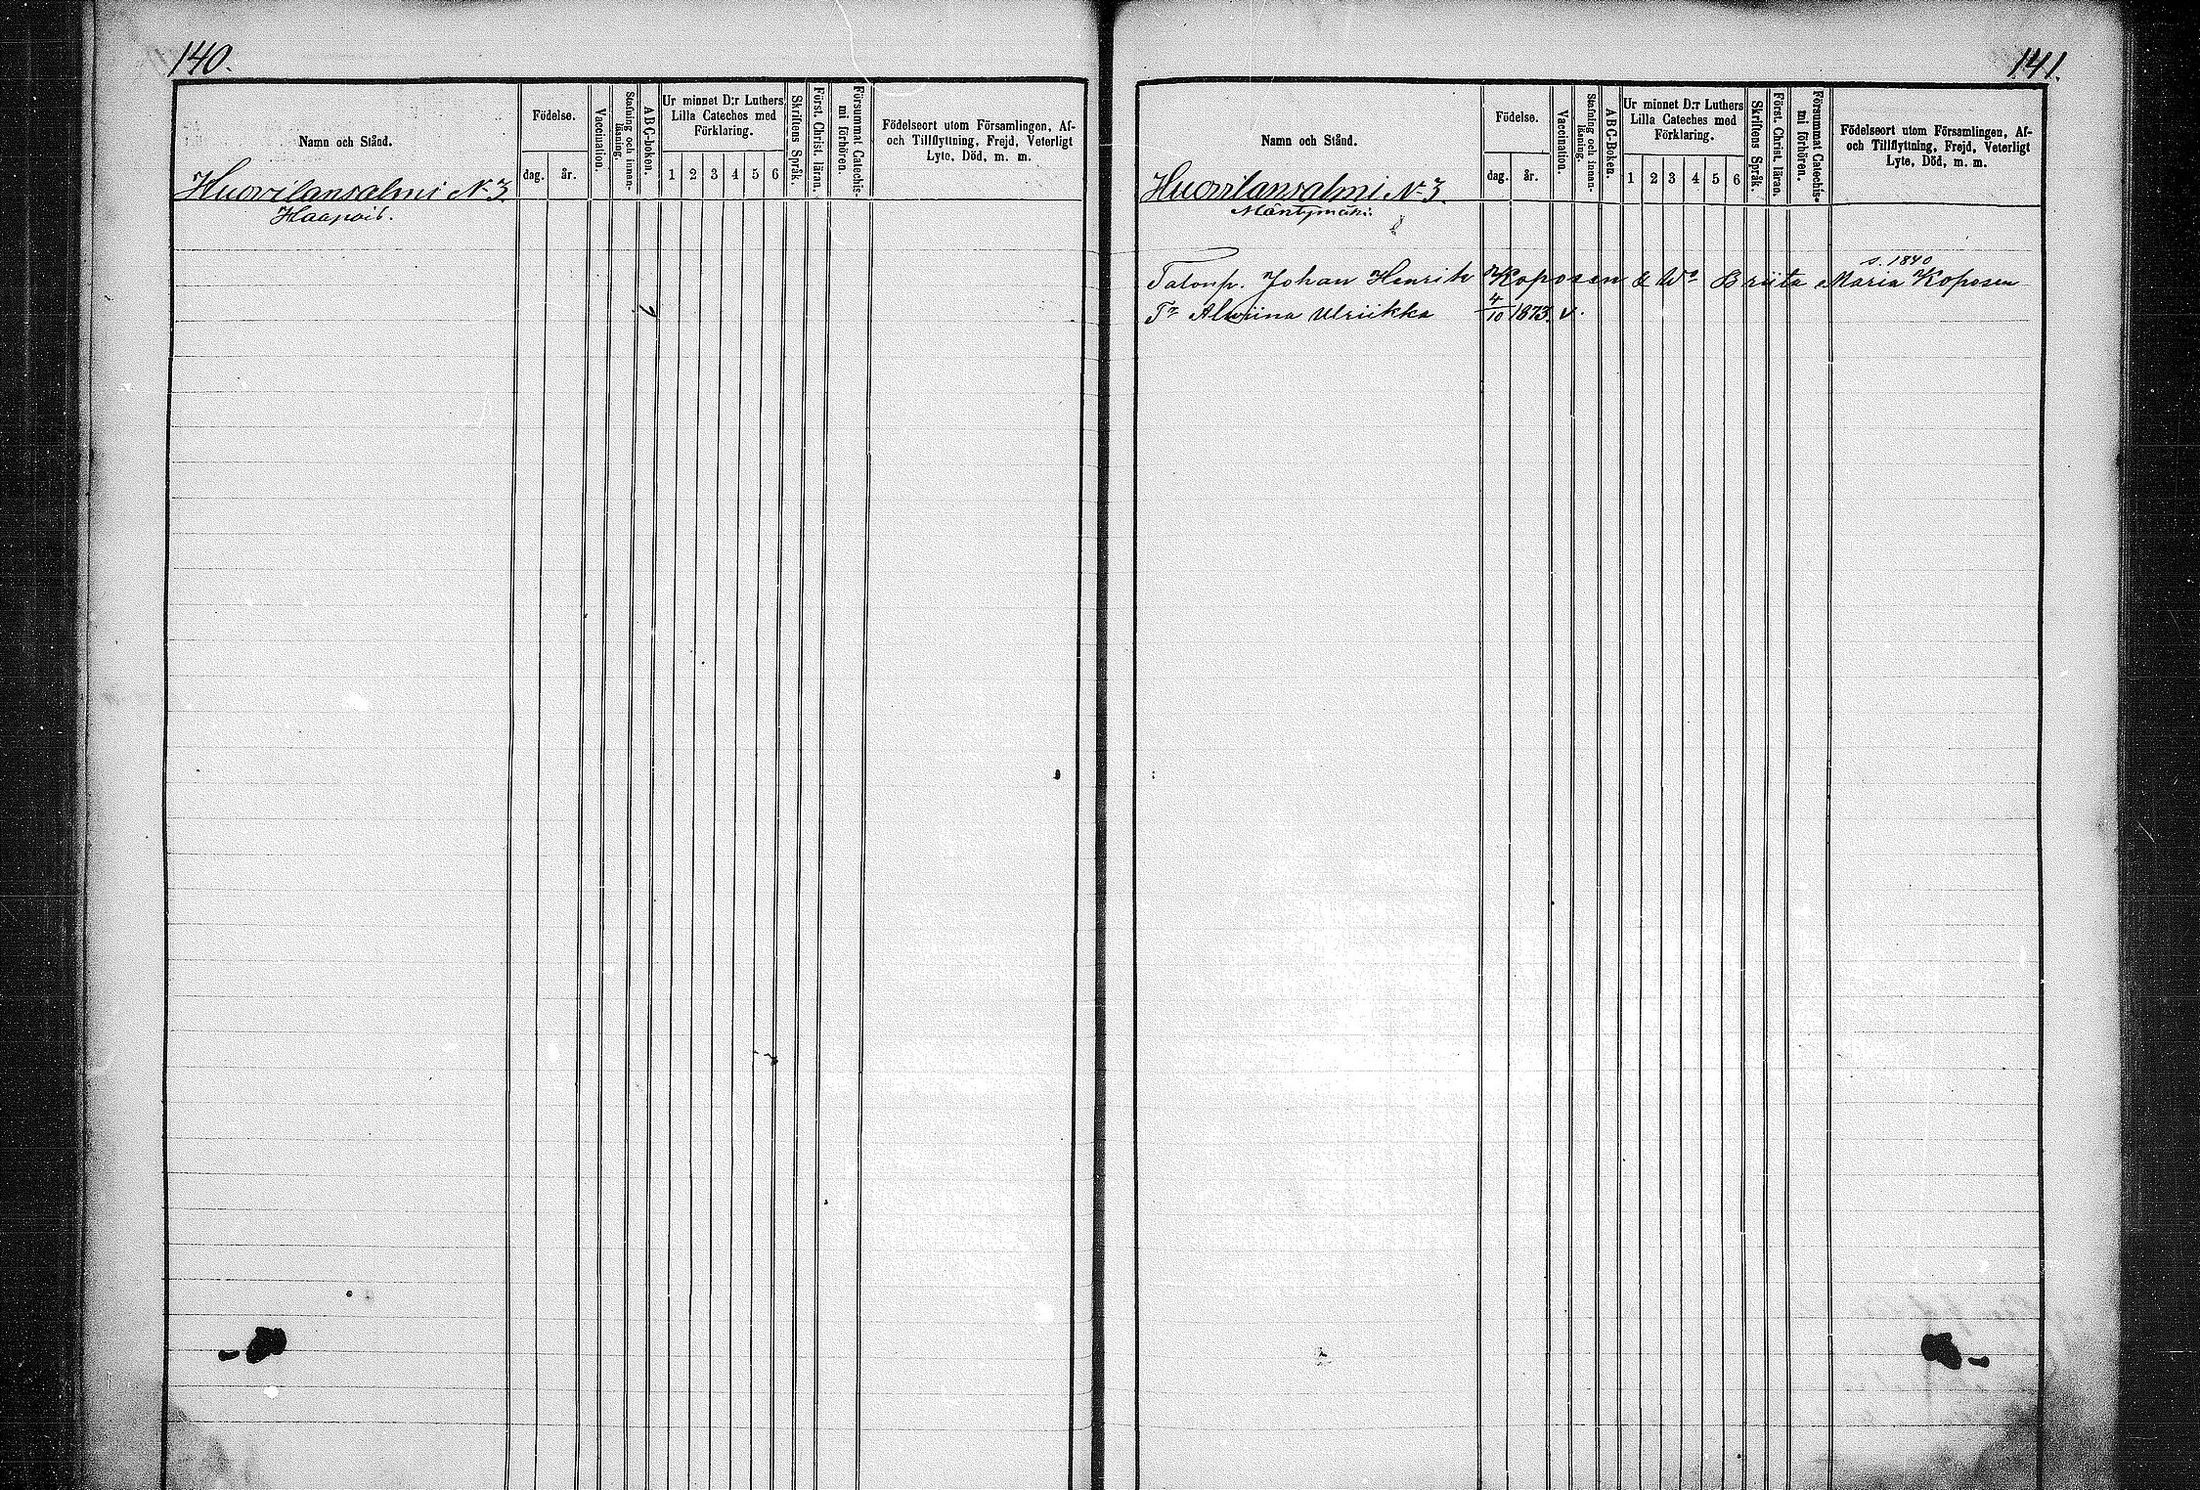 140.
Namn och Stånd.
Födelse.
dag.
år.
Vaccination.
Stafning och innanläsning.
ABC-boken.
Ur minnet D:r Luthers
Lilla Cateches med
Förklaring.
1 2 3 4 5 6
Skriftens Språk.
Först. Christ. läran.
Försummat Catechismi förhören.
Födelseort utom Församlingen, Af-
och Tillflyttning, Frejd, Veterligt
Lyte, Död, m. m.
Huovilansalmi N:o 3.
141.
Namn och Stånd.
Födelse.
dag.
år.
Vaccination.
Stafning och innanläsning.
ABC-Boken.
Ur minnet D:r Luthers
Lilla Cateches med
Förklaring.
1 2 3 4 5 6
Skriftens Språk.
Först. Christ. läran.
Försummat Catechismi förhören.
Födelseort utom Församlingen, Af-
och Tillflyttning, Frejd, Veterligt
Lyte, Död, m. m.
Huovilansalmi N:o 3.
Mäntymäki
s. 1840
Talonp. Johan Henrik Koposen & Wo Briita Maria Koposen
Tr Alwiina Ulriikka 4/10 1873. v.